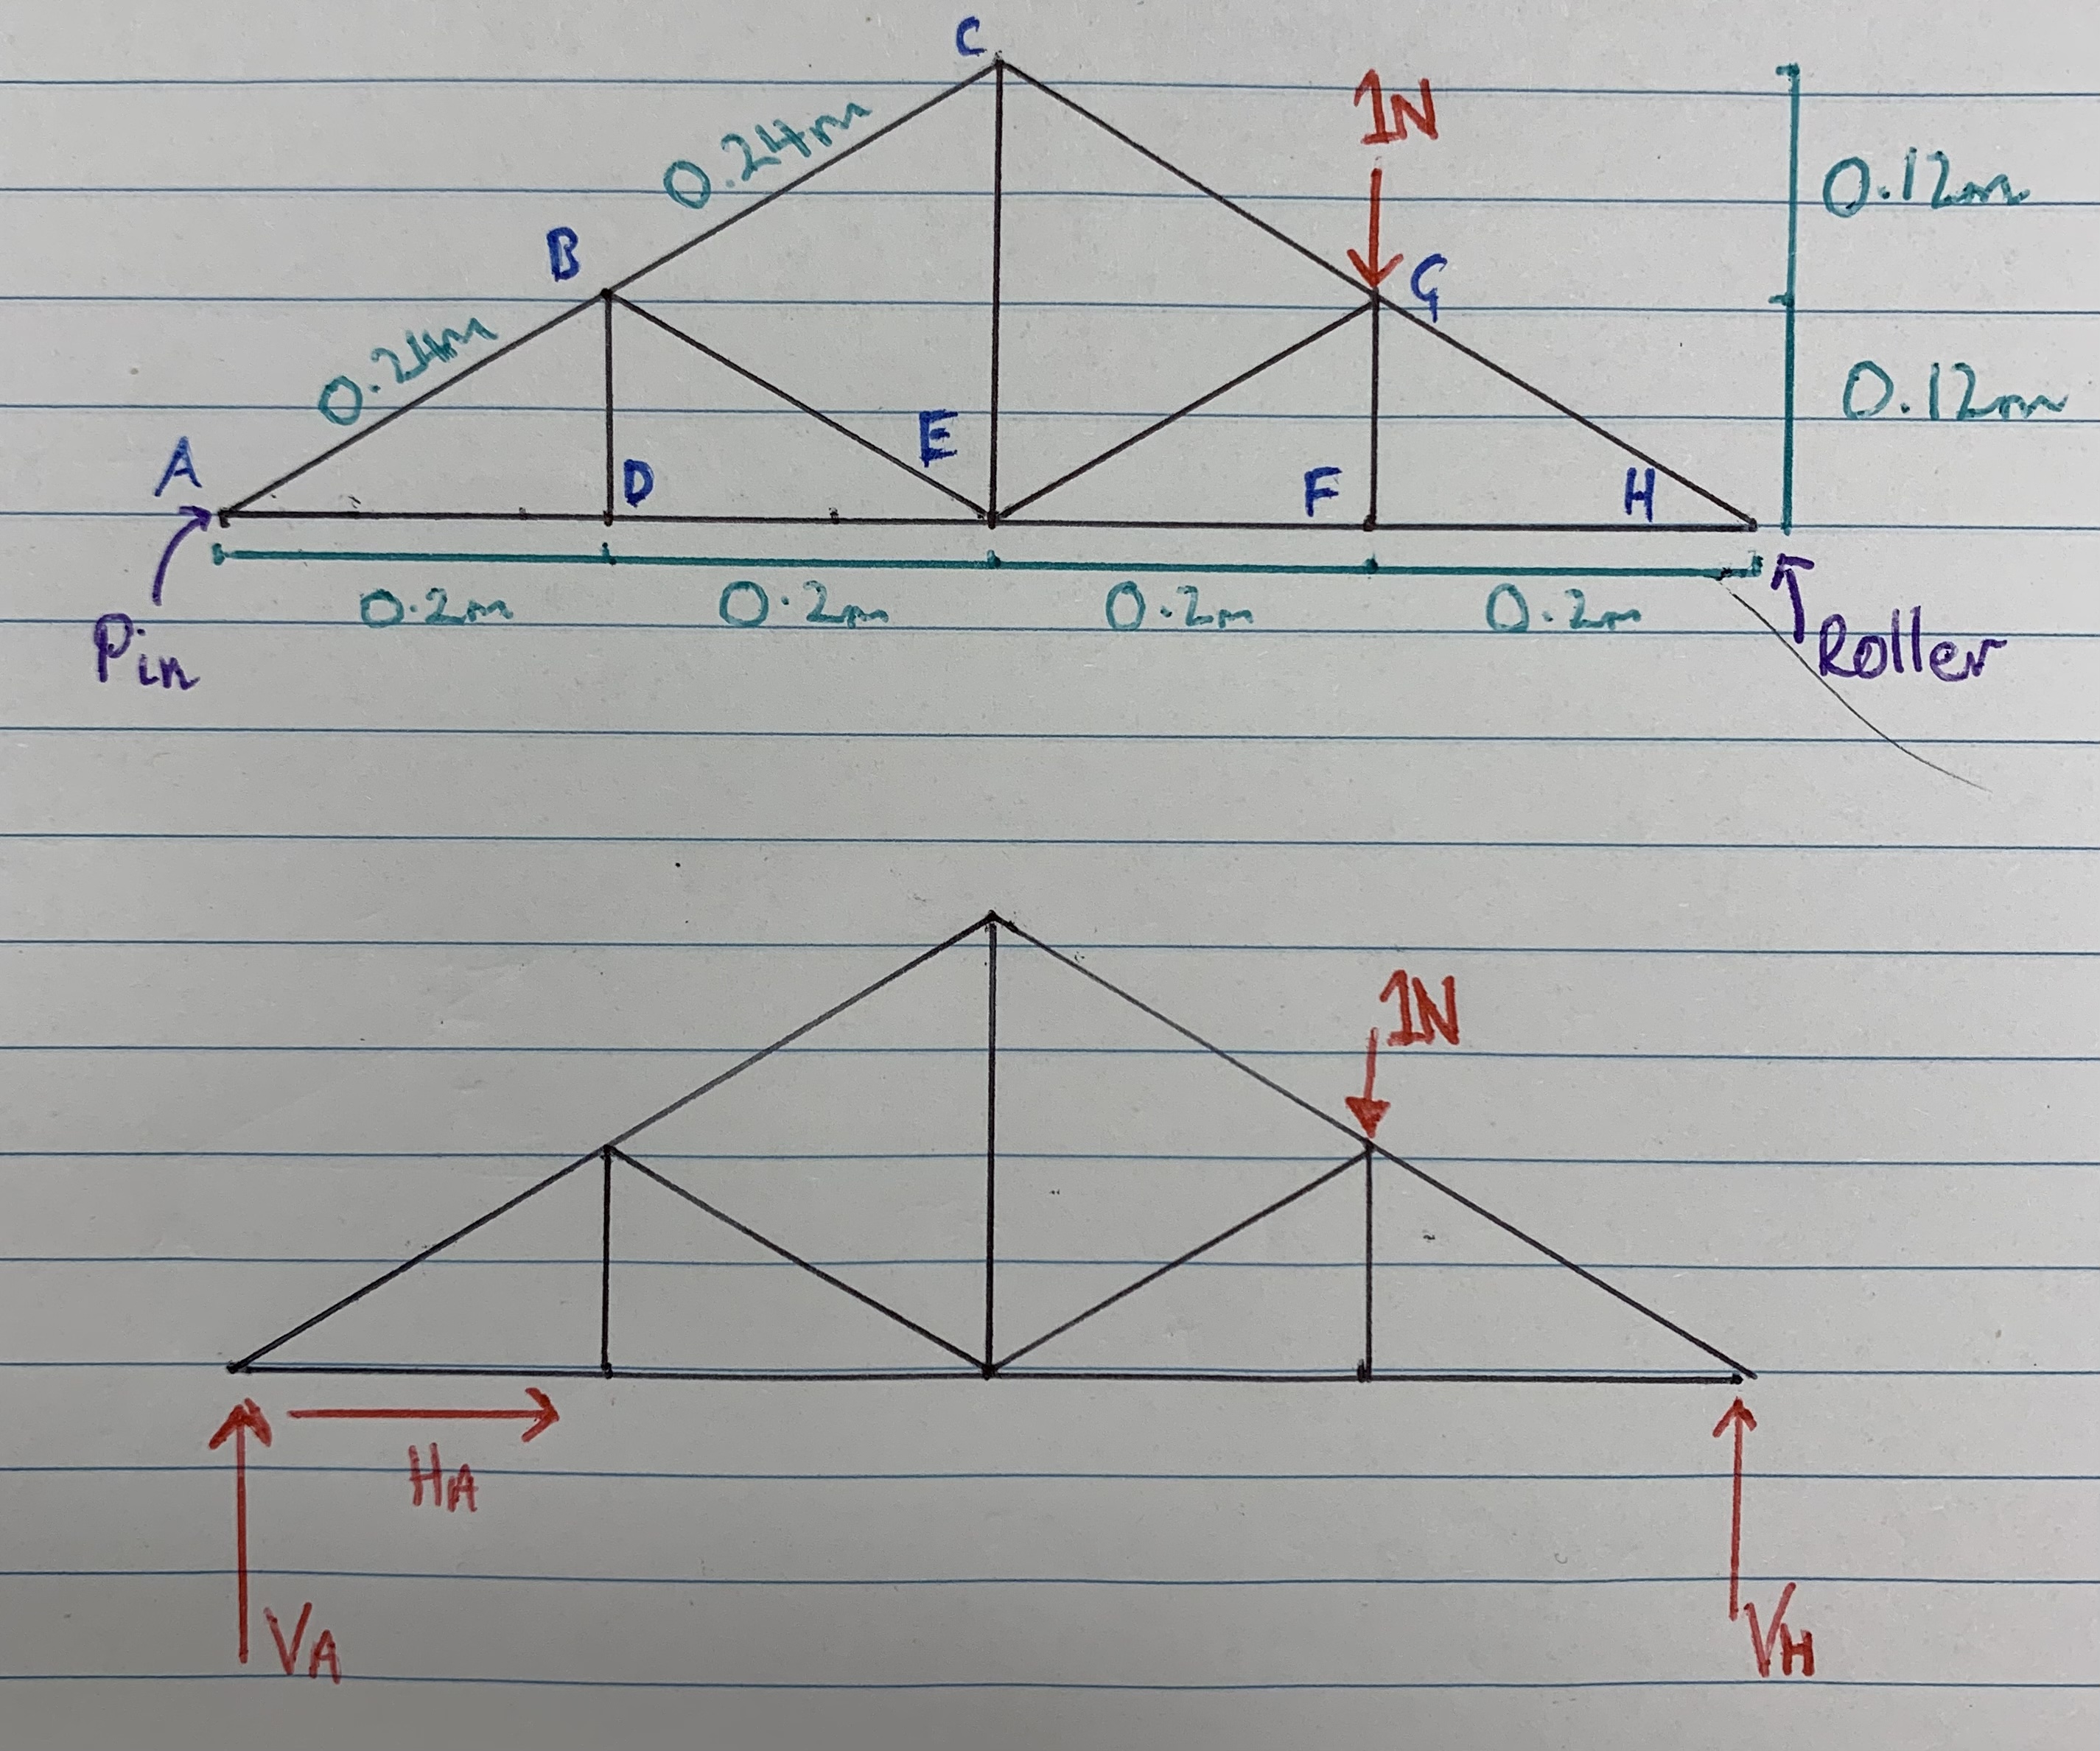 C
1N
0.24m
0.12m
B
G
0.24m
0.12m
A
E
D
F
H
Pin
0.2m
0.2m
0.2m
0.2m
Roller
1N
HA
VA
VH